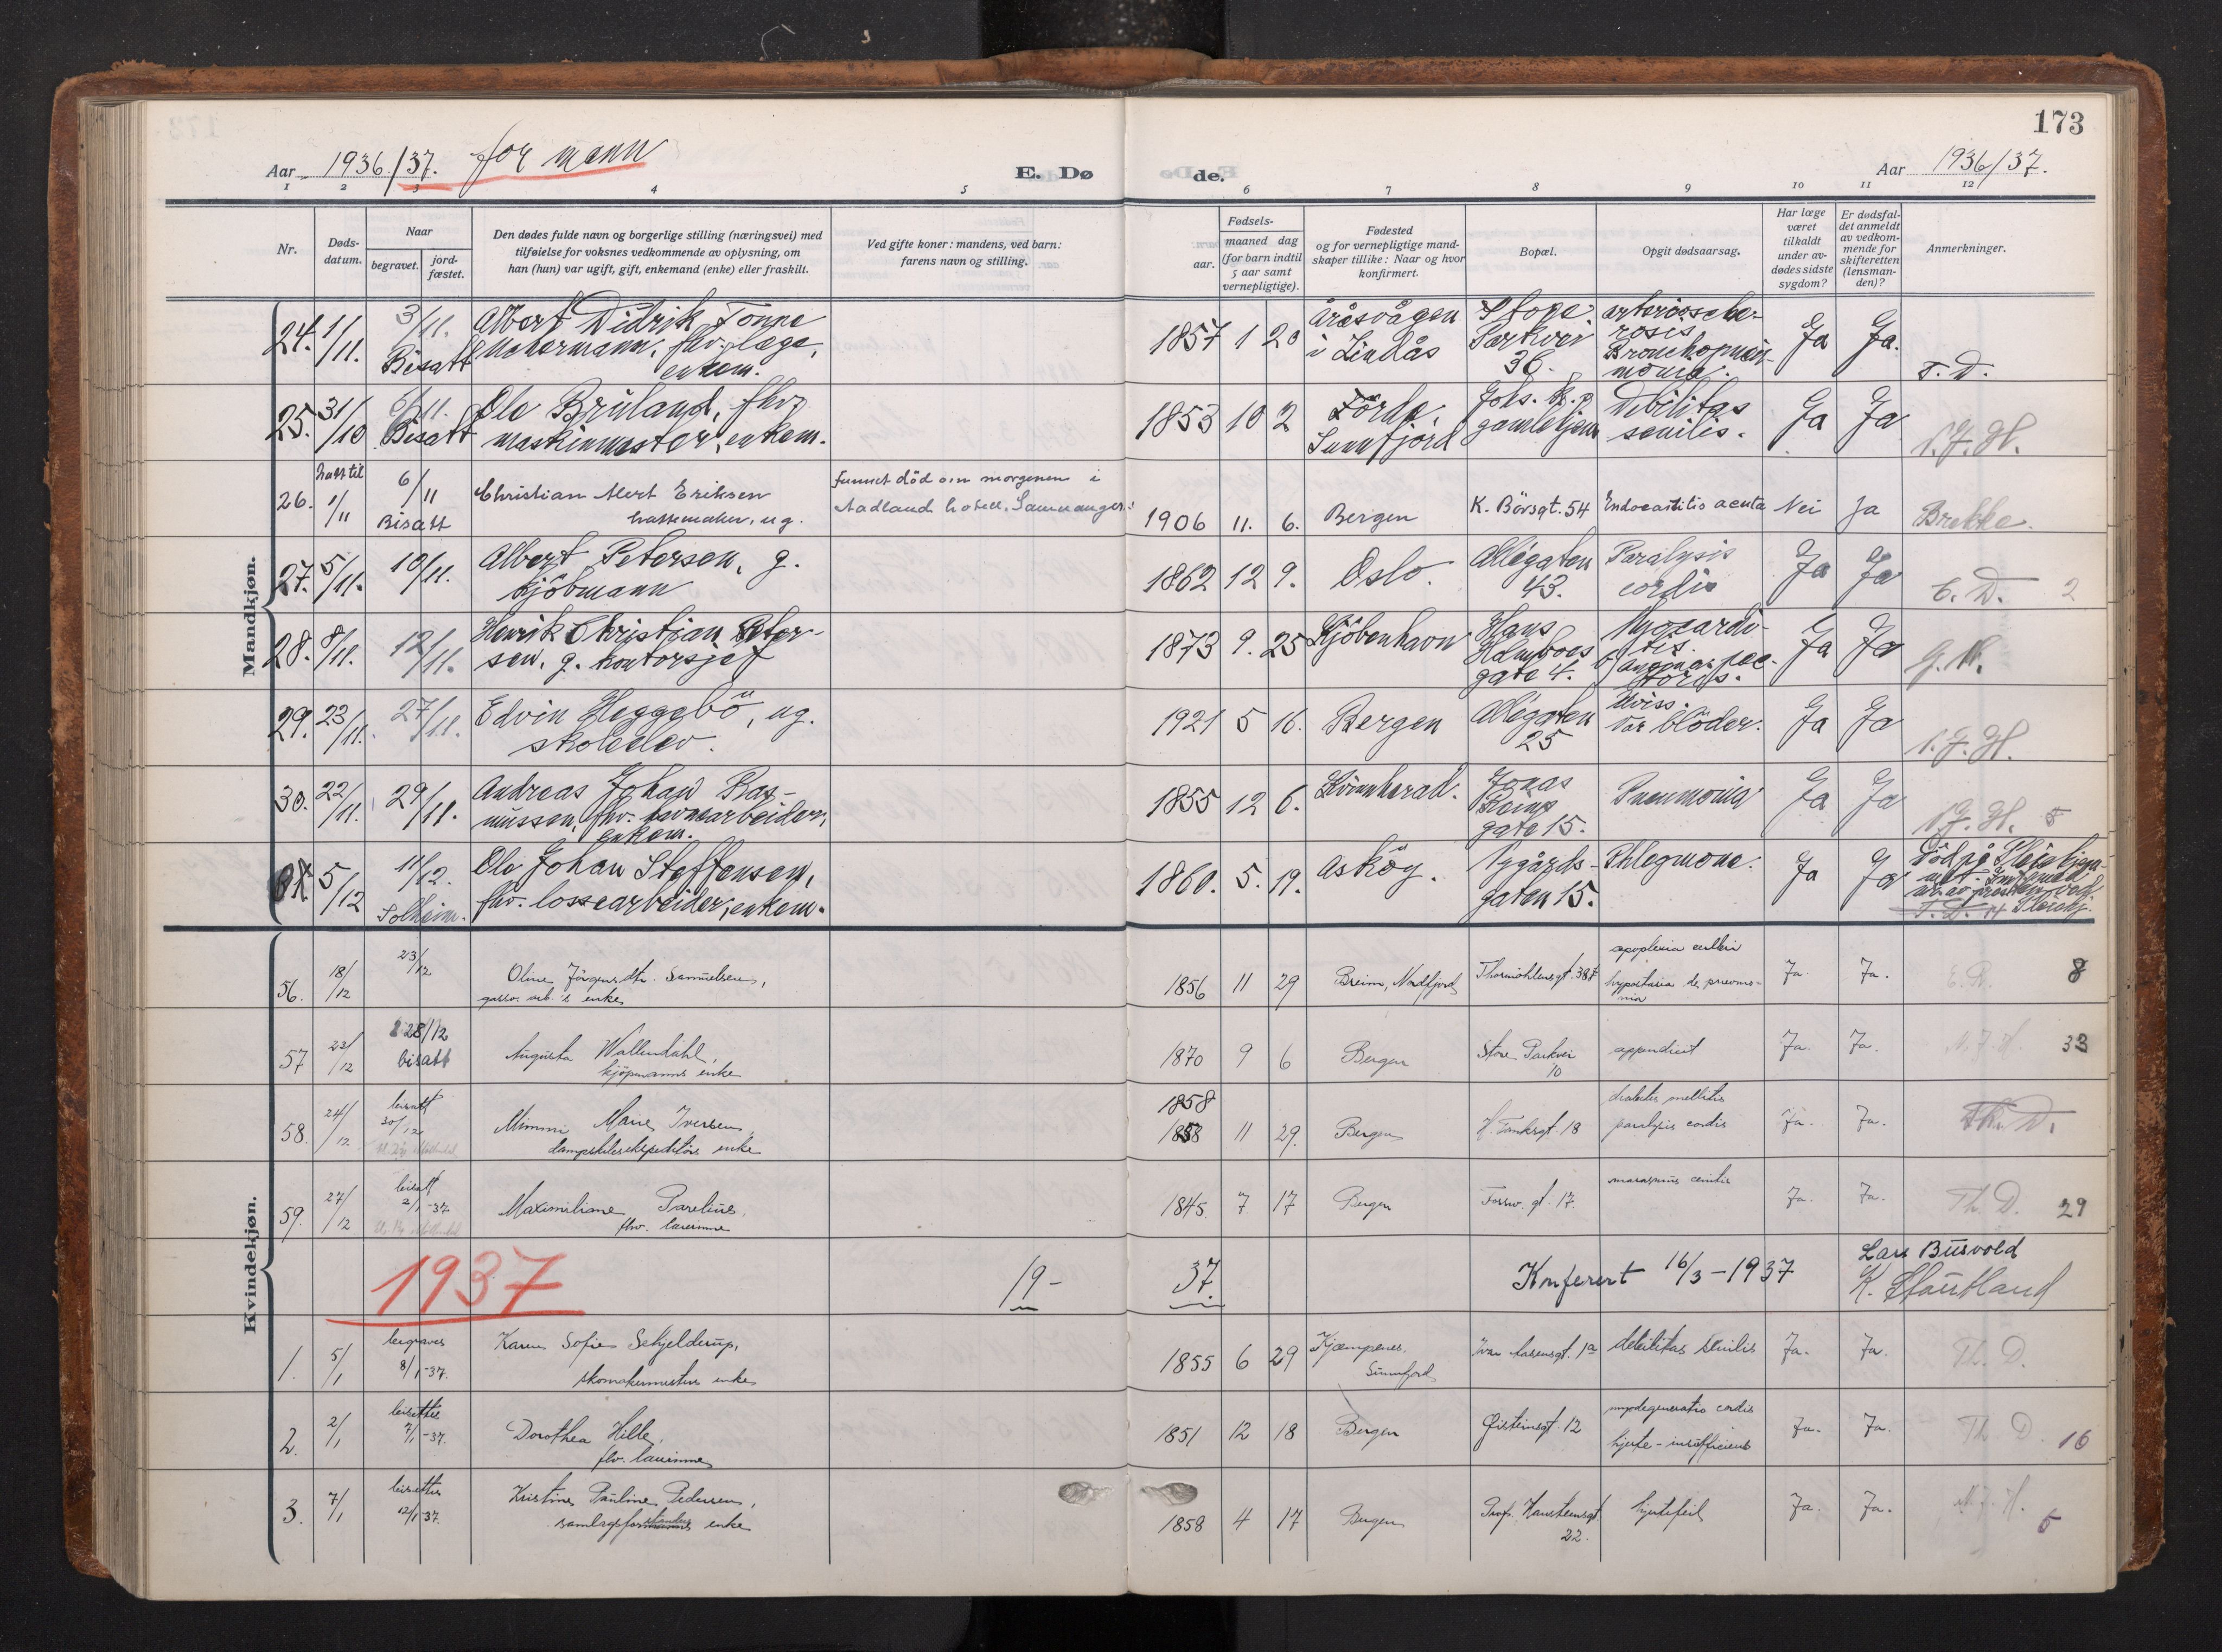 173
Aar 1936/37. for mann
E. Dø de.
Aar 1936/37.
1 2 3 4 5 6 7 8 9 10 11 12
Nr.
Døds-
datum.
Naar
begravet.
jord-
fæstet.
Den dødes fulde navn og borgerlige stilling (næringsvei) med
tilføielse for voksnes vedkommende av oplysning, om
han (hun) var ugift, gift, enkemand (enke) eller fraskilt.
Ved gifte koner: mandens, ved barn:
farens navn og stilling.
Fødsels-
aar.
maaned dag
(for barn indtil
5 aar samt
vernepligtige).
Fødested
og for vernepligtige mand-
skaper tillike: Naar og hvor
konfirmert.
Bopæl.
Opgit dødsaarsag.
Har læge
været
tilkaldt
under av-
dødes sidste
sygdom?
Er dødsfal-
det anmeldt
av vedkom-
mende for
skifteretten
(lensman-
den)?
Anmerkninger.
Mandkjøn.
24. 1/11. 3/11. Bisatt
Albert Didrik Tonne
Uchermann, fhv. læge,
enkem.
1857 1 20
Åråsvågen
i Lindås
Store
Parkvei
36.
arterioscle-
rosis
Bronchopneu-
monia.
Ja Ja. T. D.
25. 31/10 6/11. Bisatt
Ole Bruland, fhv.
maskinmester, enkem.
1853 10 2
Förde,
Sunnfjord
Joh. K. p
gamlehjem
Debilitas
senilis.
Ja Ja N. J. H.
26. natt til 1/11 6/11 Bisatt
Christian Mert Eriksen
hattemaker, ug.
funnet död om morgenen i
Aadland hotell, Samnanger.
1906 11. 6. Bergen K. Börsgt. 54 Endocarditis acuta Nei Ja Brekke.
27. 5/11. 10/11.
Albert Petersen, g.
kjöbmann
1862 12 9. Oslo.
Allégaten
43.
Paralysis
cordis
Ja Ja E. D. 2
28. 8/11. 12/11.
Henrik Christian Peter-
sen, g. kontorsjef
1873 9. 25 Kjöbenhavn
Hans
Holmboes
gate 4.
Myocardi-
tis.
Angina pec-
toris.
Ja Ja G. R.
29. 23/11. 27/11.
Edvin Heggebö, ug.
skoleelev.
1921 5 16. Bergen
Allégaten
25
Uviss.
Var blöder.
Ja Ja N. J. H.
30. 22/11. 29/11.
Andreas Johan Ras-
mussen, fhv. havnearbeider,
enkem.
1855 12 6. Kvinnherad.
Jonas
Reins
gate 15.
Pneumonia Ja Ja N. J. H. 5
31 5/12 11/12. Solheim.
Ole Johan Steffensen,
fhv. lossearbeider, enkem.
1860. 5. 19. Asköy.
Nygårds-
gaten 15.
Phlegmone. Ja Ja
Död på Pleiehjem-
T. D.
Kvindekjøn.
56. 18/12 23/12
Oline Jörgensdtr. Samuelsen,
gassv. arb.'s enke
1856 11 29 Breim, Nordfjord Thormöhlensgt. 38
apoplexia cerebri
hypostasia de pneumo-
nia
Ja. Ja. E. D. 8
57 23/12 28/12 bisatt
Augusta Wallendahl,
kjöpmanns enke
1870 9 6 Bergen
Store Parkvei
10
appendicit Ja. Ja. N. J. H. 33
58. 24/12 bisatt 30/12
Mimmi Marie Iversen,
dampskibsekspeditörs enke
1858
1858 11 29. Bergen H. Tanksgt. 18
diabetes mellitus
paralysis cordis
Ja. Ja. Th. D.
59. 27/12 bisatt 2/1-37.
Maximiliane Parelius,
fhv. lærerinne
1845. 7. 17 Bergen Fossw. gt. 17. marasmus senilis Ja. Ja. Th. D. 29
1937 19- 37. Konferert 16/3-1937
Lars Busvold
K. Stautland
1. 5/1 begraves 8/1-37.
Karen Sofie Schjelderup,
skomakermesters enke
1855 6 29
Kjempenes,
Sunnfjord
Ivar Aasensgt. 1a debilitas senilis Ja. Ja. Th. D.
2. 2/1 bisettes 7/1-37.
Dorothea Hille,
fhv. lærerinne
1851 12 18 Bergen Øisteinsgt 12
myodegeneratio cordis
hjerte-insufficiens
Ja. Ja. Th. D. 16
3. 7/1 bisettes 12/1-37.
Kristine Pauline Pedersen,
samlagsforstanders enke
1858 4 17 Bergen
Prof. Hansteensgt.
22.
hjertefeil Ja. Ja. N. J. H. 5